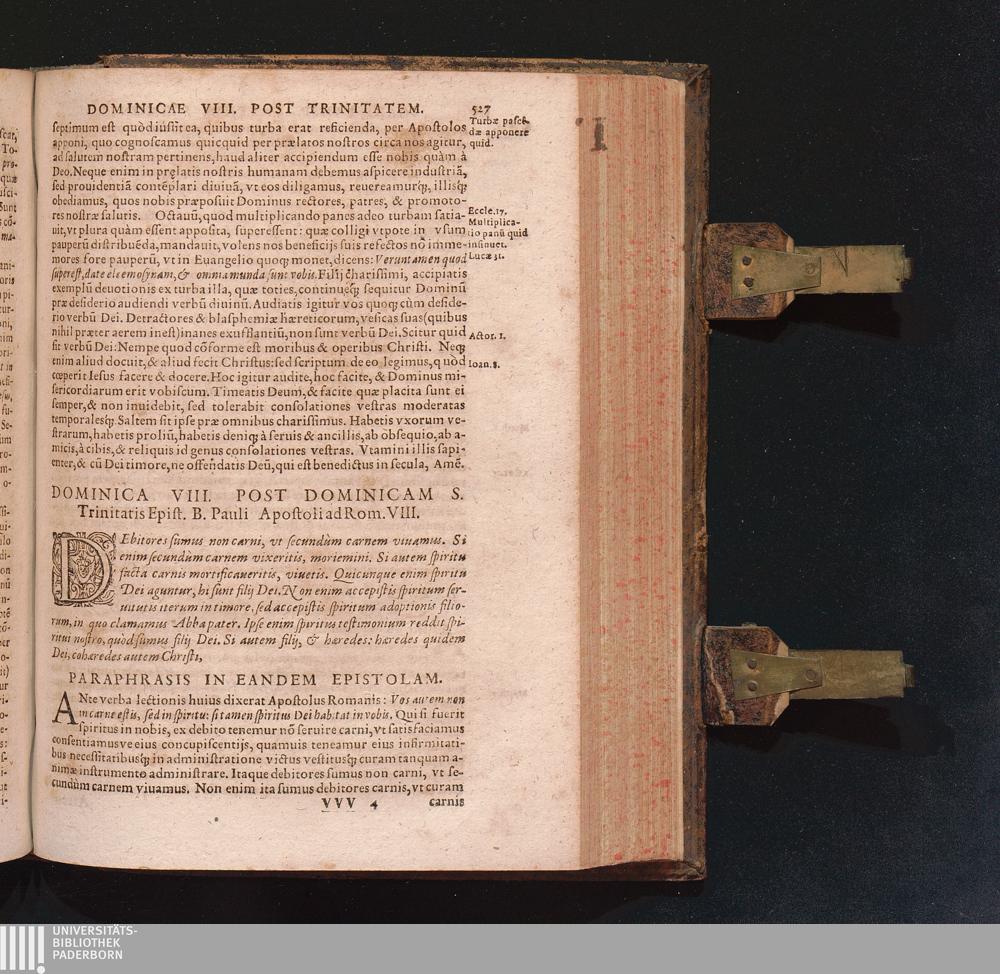 DOMINICAE VIII. POST TRINITATEM. 527
septimum est quòd iussit ea, quibus turba erat reficienda, per Apostolos
apponi, quo cognoscamus quicquid per prælatos nostros circa nos agitur,
ad salutem nostram pertinens, haud aliter accipiendum esse nobis quàm à
Deo. Neque enim in prælatis nostris humanam debemus aspicere industriã,
sed prouidentiã contẽplari diuinã, vt eos diligamus, reuereamurq́;, illisq́;
obediamus, quos nobis præposuit Dominus rectores, patres, & promoto-
res nostræ salutis. Octauũ, quod multiplicando panes adeo turbam satia-
uit, vt plura quàm essent apposita, superessent: quæ colligi vtpote in vsum
pauperũ distribuẽda, mandauit, volens nos beneficijs suis refectos nõ imme-
mores fore pauperũ, vt in Euangelio quoq; monet, dicens: Veruntamen quod
superest, date eleemosynam, & omnia munda sunt vobis. Filij charissimi, accipiatis
exemplũ deuotionis ex turba illa, quæ toties, continueq́; sequitur Dominũ
præ desiderio audiendi verbũ diuinũ. Audiatis igitur vos quoq; cùm deside-
rio verbũ Dei. Detractores & blasphemiæ hæreticorum, vesicas suas (quibus
nihil præter aerem inest) inanes exufflantiũ, non sunt verbũ Dei. Scitur quid
sit verbũ Dei: Nempe quod cõforme est moribus & operibus Christi. Neq;
enim aliud docuit, & aliud fecit Christus: sed scriptum de eo legimus, quòd
cœperit Iesus facere & docere. Hoc igitur audite, hoc facite, & Dominus mi-
sericordiarum erit vobiscum. Timeatis Deum, & facite quæ placita sunt ei
semper, & non inuidebit, sed tolerabit consolationes vestras moderatas
temporalesq́;. Saltem sit ipse præ omnibus charissimus. Habetis vxorum ve-
strarum, habetis proliũ, habetis deniq; à seruis & ancillis, ab obsequio, ab a-
micis, à cibis, & reliquis id genus consolationes vestras. Vtamini illis sapi-
enter, & cũ Dei timore, ne offendatis Deũ, qui est benedictus in secula, Amẽ.
Turbæ pascẽ-
dæ apponere
quid.
Eccle. 17.
Multiplica-
tio panũ quid
insinuet.
Lucæ 31.
Actor. 1.
Ioan. 8.
DOMINICA VIII. POST DOMINICAM S.
Trinitatis Epist. B. Pauli Apostoli ad Rom. VIII.
DEbitores sumus non carni, vt secundùm carnem viuamus. Si
enim secundùm carnem vixeritis, moriemini. Si autem spiritu
facta carnis mortificaueritis, viuetis. Quicunque enim spiritu
Dei aguntur, hi sunt filij Dei. Non enim accepistis spiritum ser-
uitutis iterum in timore, sed accepistis spiritum adoptionis filio-
rum, in quo clamamus Abba pater. Ipse enim spiritus testimonium reddit spi-
ritui nostro, quòd sumus filij Dei. Si autem filij, & hæredes: hæredes quidem
Dei, cohæredes autem Christi,
PARAPHRASIS IN EANDEM EPISTOLAM.
ANte verba lectionis huius dixerat Apostolus Romanis: Vos autem non
in carne estis, sed in spiritu: si tamen spiritus Dei habitat in vobis. Qui si fuerit
spiritus in nobis, ex debito tenemur nõ seruire carni, vt satisfaciamus
consentiamusve eius concupiscentijs, quamuis teneamur eius infirmitati-
bus necessitatibusq́; in administratione victus vestitusq́; curam tanquam a-
nimæ instrumento administrare. Itaque debitores sumus non carni, vt se-
cundùm carnem viuamus. Non enim ita sumus debitores carnis, vt curam
VVV 4 carnis
UNIVERSITÄTS-
BIBLIOTHEK
PADERBORN